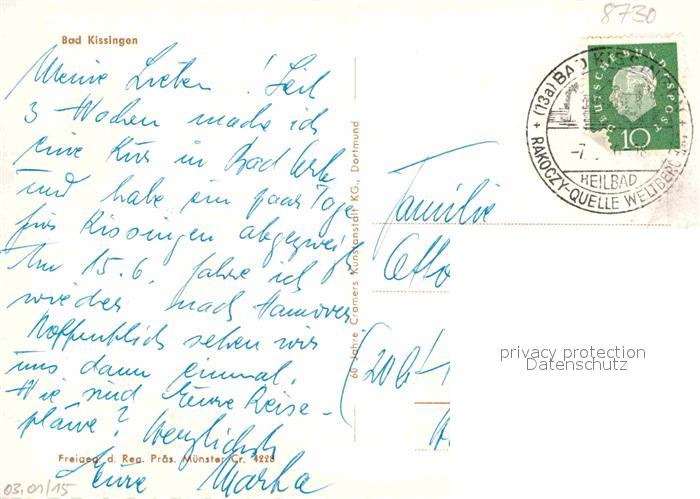 8730
Bad Kissingen
Meine Lieben! Seit
3 Wochen mache ich
eine Kur in Bad
und habe ein paar Tage
für Kissingen abgezweigt
Am 15.6. fahre ich
wieder nach Hannover
Hoffentlich sehen wir
uns dann einmal.
Wie sind Eure Reise-
pläne? Herzlichst
Eure Martha
Freigeg. d. Reg. Präs. Münster Cr. 4228
03.01/15
60 Jahre Cramers Kunstanstalt KG., Dortmund
Familie
Otto
(20
DEUTSCHE BUNDESPOST
10
(13a) BAD KISSINGEN
-7.
HEILBAD
RAKOCZY-QUELLE WELTBER
privacy protection
Datenschutz